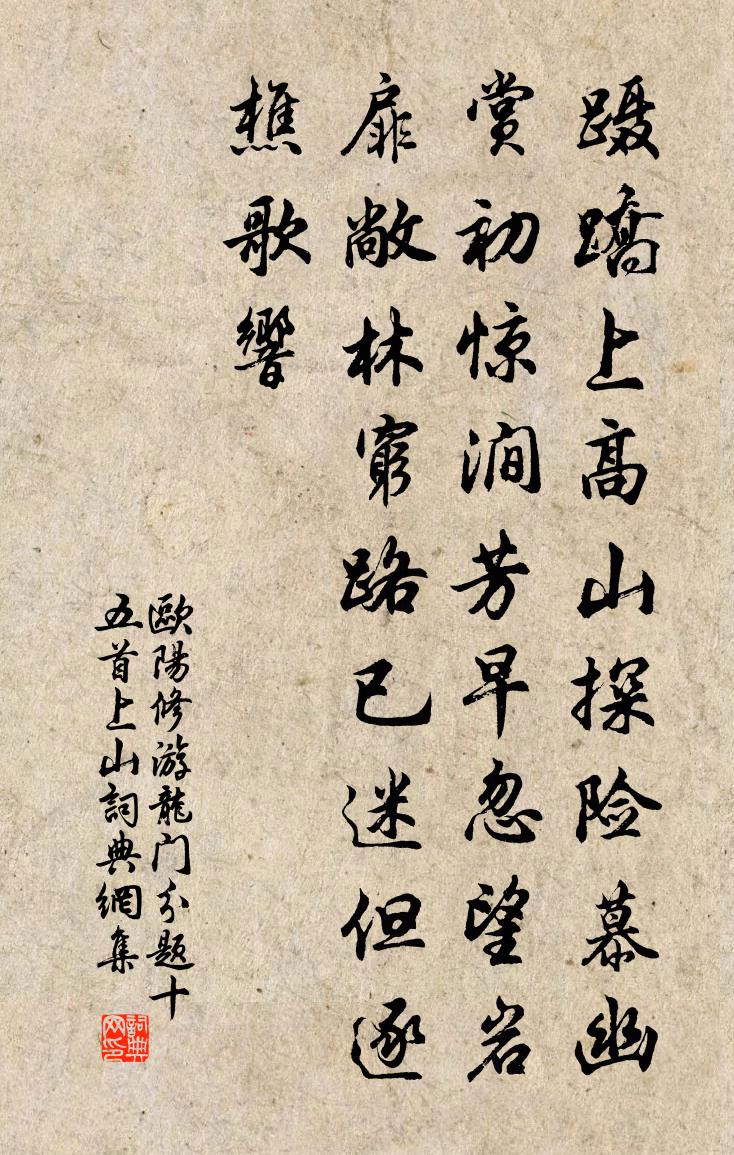 蹑蹻上高山探险慕幽
赏初惊涧芳早忽望岩
扉敞林穷路已迷但逐
樵歌響
歐陽修游龍门分题十
五首上山詞典網集
詞典网印